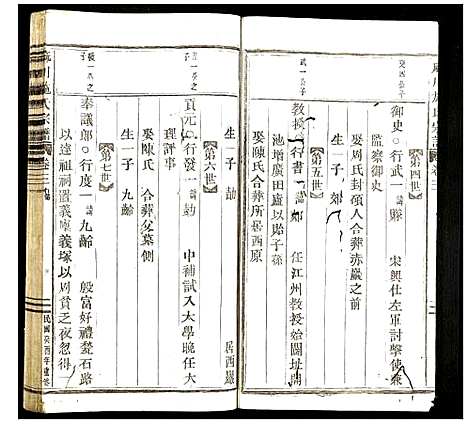 【第四世】
御史○行武一 諱
宋興仕左軍討擊使兼
監察御史
娶周氏封碩人合葬赤巖之前
生一子 郊
【第五世】
教授○行書一 諱郊
任江州教授始闢址開
池增廣田廬以貽子孫
娶陳氏合葬所居西原
生一子 勀
居西巖
【第六世】
貢元○行發一 諱勀
中補試入太學晚任大
理評事
娶陳氏 合葬父墓側
生一子 九齡
【第七世】
奉議郎○行度一 諱九齡
殷富好禮甃石路
以達祖祠置義廩義塚以周貧乏夜忽得一
民國癸酉年重修